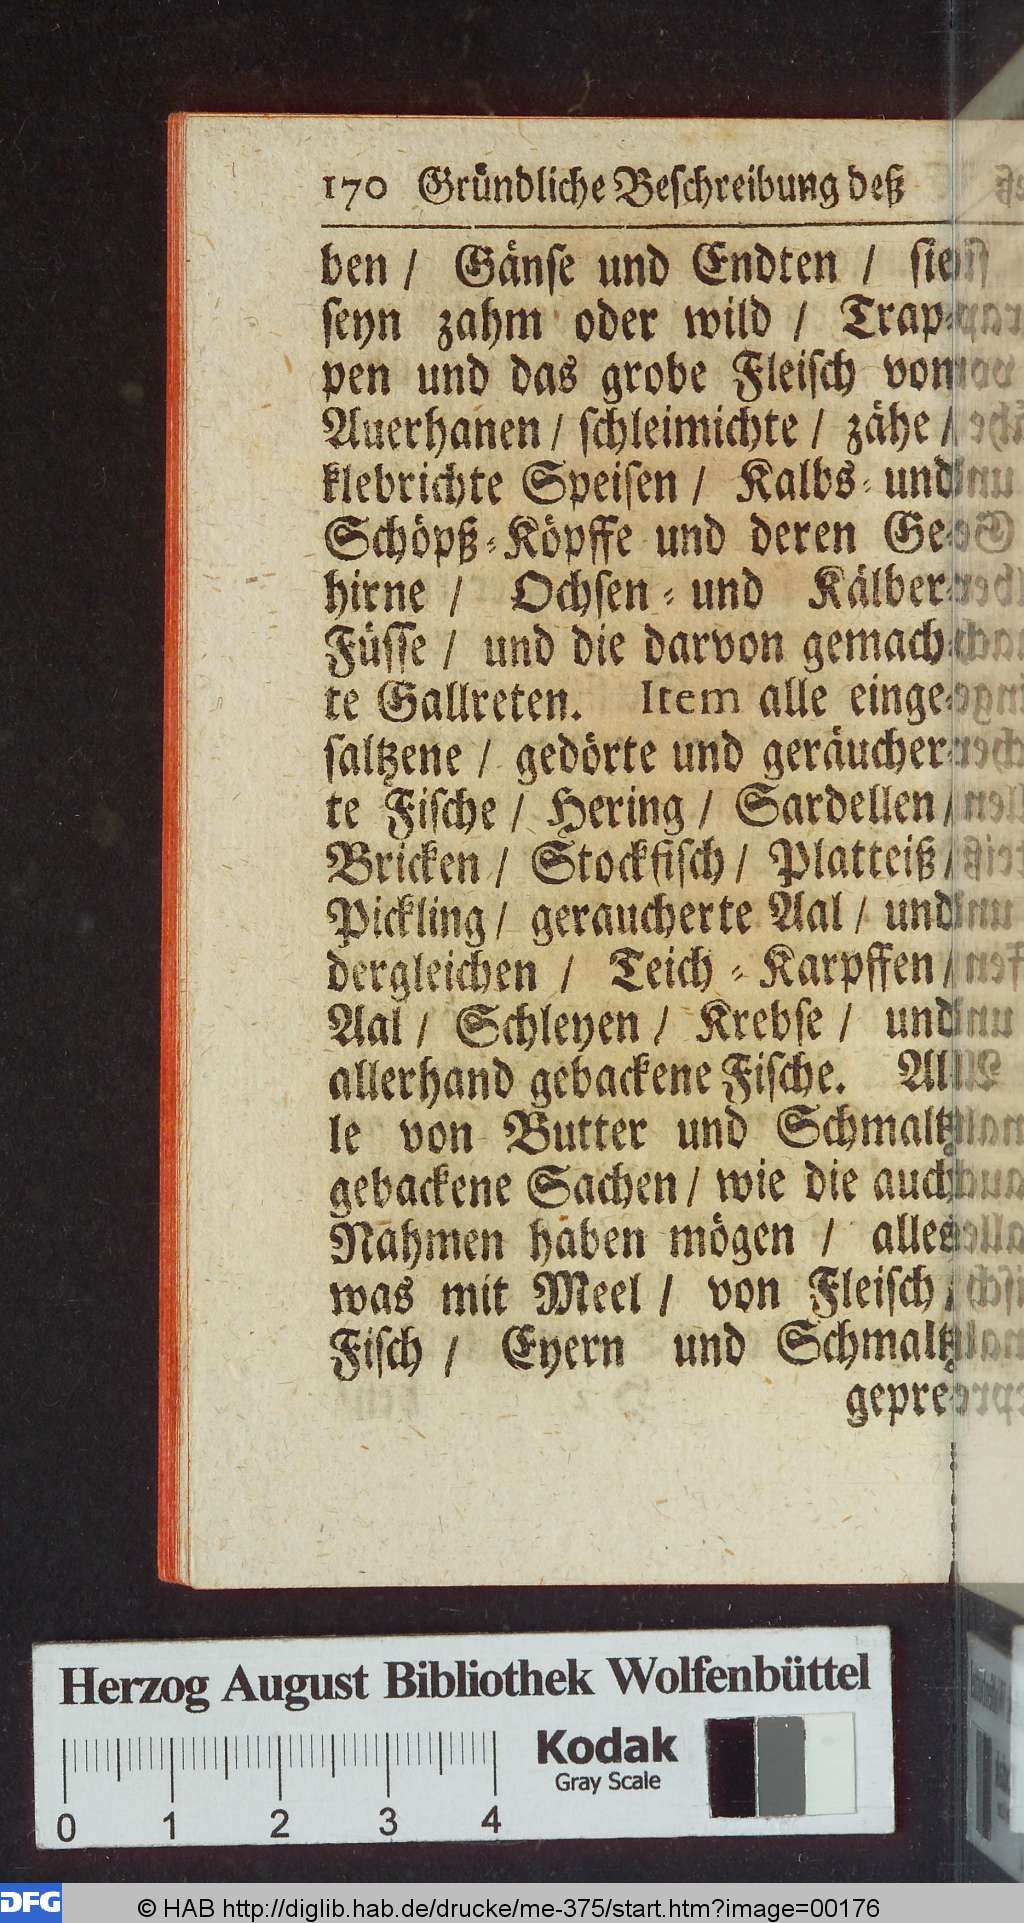 170 Gründliche Beschreibung deß
ben / Gänse und Endten / sie
seyn zahm oder wild / Trap-
pen und das grobe Fleisch von
Auerhanen / schleimichte / zähe /
klebrichte Speisen / Kalbs- und
Schöpß-Köpffe und deren Ge-
hirne / Ochsen- und Kälber-
Füsse / und die darvon gemach-
te Gallreten. Item alle einge-
saltzene / gedörte und geräucher-
te Fische / Hering / Sardellen /
Bricken / Stockfisch / Platteiß /
Pickling / geraucherte Aal / und
dergleichen / Teich-Karpffen /
Aal / Schleyen / Krebse / und
allerhand gebackene Fische. Al-
le von Butter und Schmaltz
gebackene Sachen / wie die auch
Nahmen haben mögen / alles
was mit Meel / von Fleisch /
Fisch / Eyern und Schmaltz
gepre-
Herzog August Bibliothek Wolfenbüttel
Kodak
Gray Scale
0 1 2 3 4
DFG © HAB http://diglib.hab.de/drucke/me-375/start.htm?image=00176